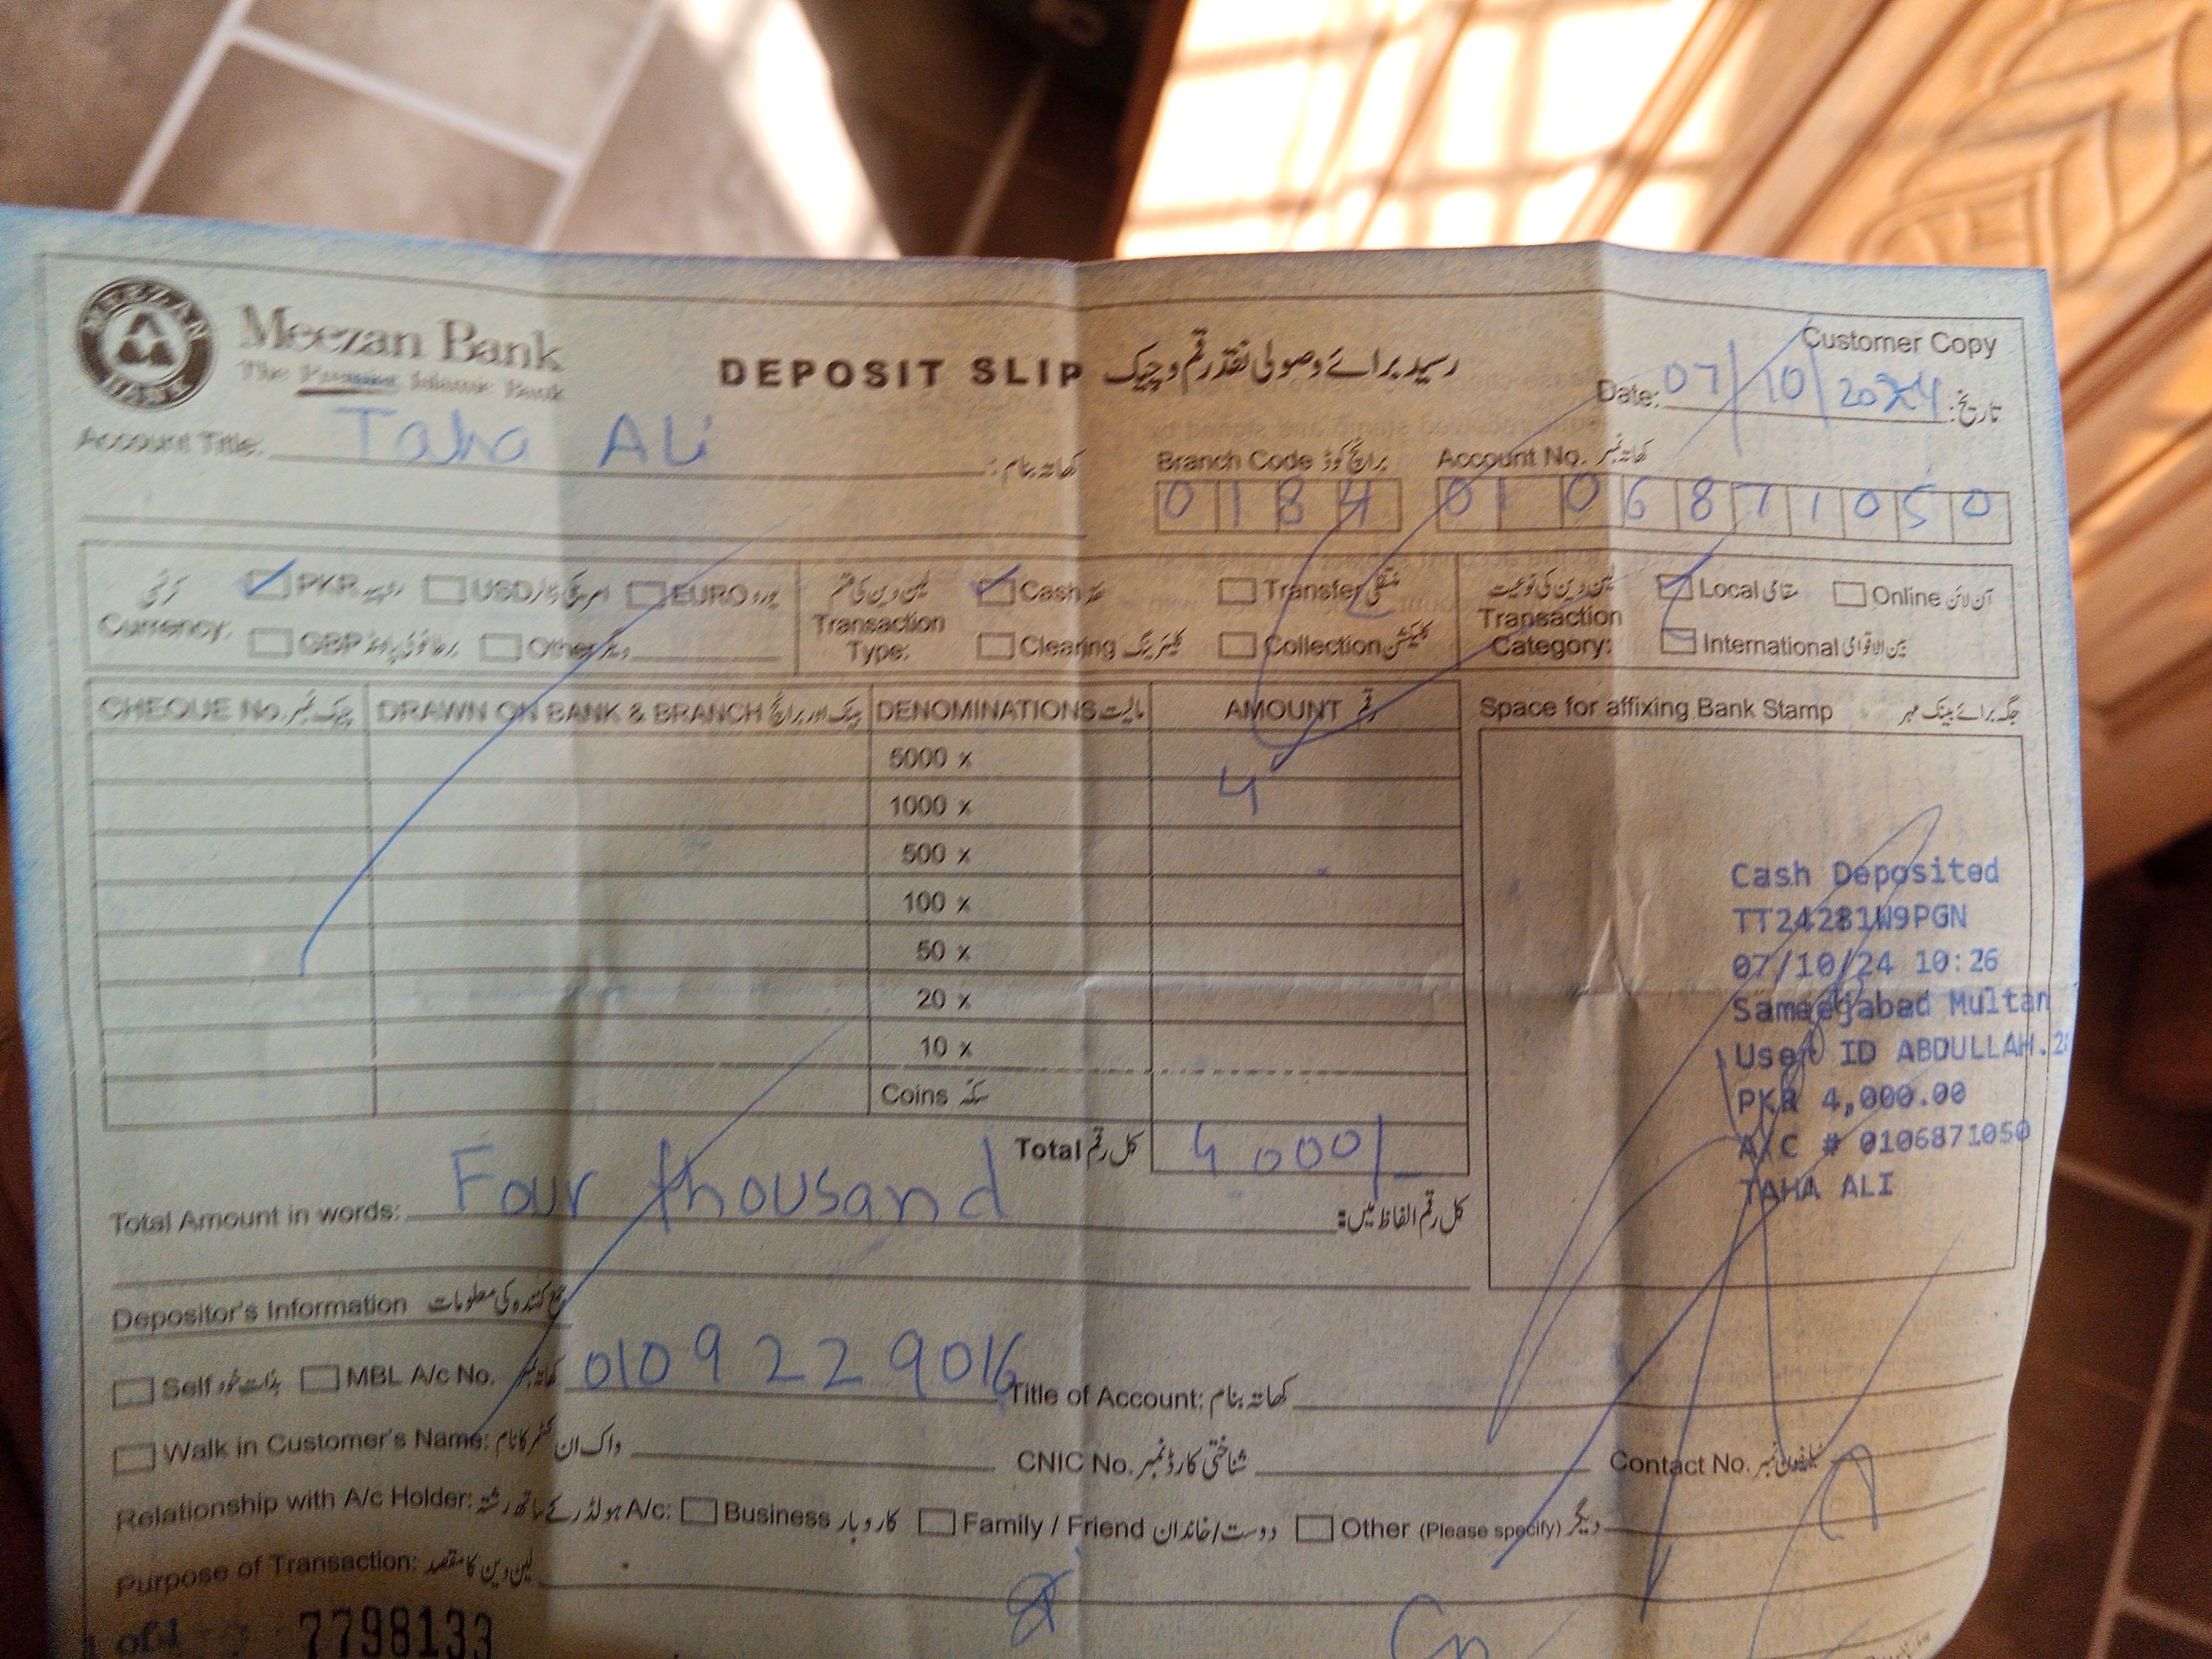 MEEZAN BANK
Meezan Bank
The Premier Islamic Bank
DEPOSIT SLIP رسید برائے وصولی نقد رقم و چیک
Customer Copy
Date: 07/10/2024 تاریخ:
Account Title: Taha Ali کھاتہ بنام:
Branch Code برانچ کوڈ Account No. کھاتہ نمبر
0184 0106871050
کرنسی Currency: PKR روپیہ USD امریکی ڈالر EURO یورو
GBP برطانوی پاؤنڈ Other دیگر
لین دین کی قسم Transaction Type: Cash نقد Transfer منتقلی
Clearing کلیئرنگ Collection کلیکشن
لین دین کی نوعیت Transaction Category: Local مقامی Online آن لائن
International بین الاقوامی
CHEQUE No. چیک نمبر DRAWN ON BANK & BRANCH بینک اور برانچ DENOMINATIONS مالیت AMOUNT رقم
Space for affixing Bank Stamp جگہ برائے بینک مہر
5000 x
1000 x 4
500 x
100 x
50 x
20 x
10 x
Coins سکے
Total کل رقم 4000/-
Cash Deposited
TT24281W9PGN
07/10/24 10:26
Sameejabad Multan
User ID ABDULLAH.2
PKR 4,000.00
A/C # 0106871050
TAHA ALI
Total Amount in words: Four thousand کل رقم الفاظ میں:
Depositor's Information جمع کنندہ کی معلومات
Self بذات خود MBL A/c No. کھاتہ نمبر 0109229016 Title of Account: کھاتہ بنام:
Walk in Customer's Name: واک ان کسٹمر کا نام: CNIC No. شناختی کارڈ نمبر Contact No. ٹیلیفون نمبر
Relationship with A/c Holder: A/c ہولڈر کے ساتھ رشتہ: Business کاروبار Family / Friend دوست/خاندان Other (Please specify) دیگر
Purpose of Transaction: لین دین کا مقصد
7798133